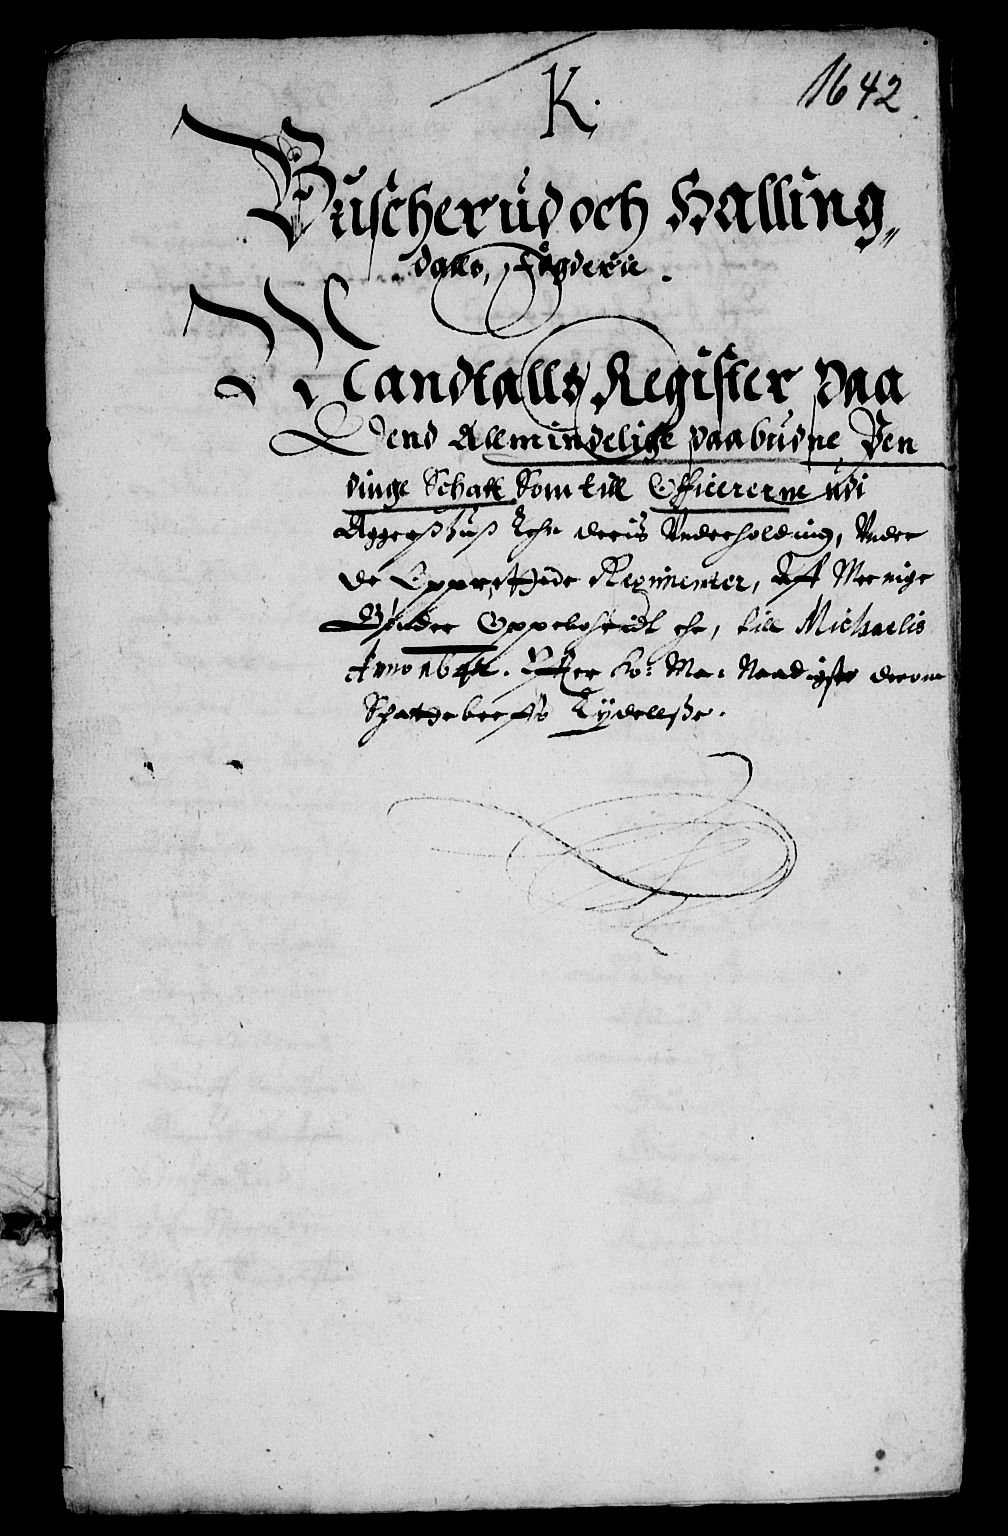 K.
1642
Buscherud och Halling„
dalls, Fögderie.
Mandtalls Register paa
Dend Allmindelige paabudne Pen
dinge Schatt Som till Officererne udi
Aggerßhuß Lehn deris Underholding, Under
de Opprettede Regimenter, Aff Meenige
Bønder Oppeboheidt ehr, till Michaelis
Anno 1642. Efter Ko: Ma: Naadigste derom
Schattebreffs Lydellße.